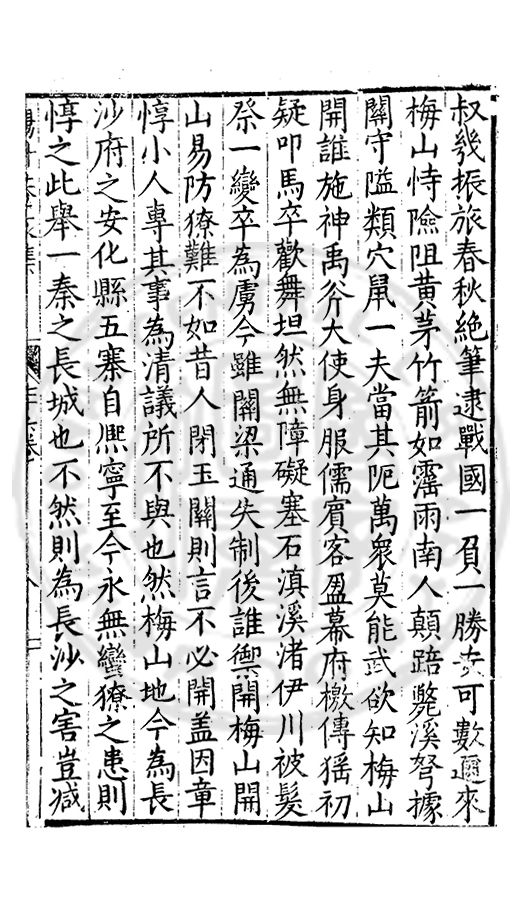 叔㡬振旅春秋絶筆逮戰國一負一勝安可數邇來
梅山恃險阻黄茅竹箭如霶雨南人顛踣斃溪弩據
關守隘類穴䑕一夫當其阨萬衆莫能武欲知梅山
開誰施神禹斧大使身服儒賓客盈幕府檄傳猺初
疑叩馬卒歡舞坦然無障礙塞石滇溪渚伊川被髮
祭一變卒為虜今雖關梁通失制後誰禦開梅山開
山易防獠難不如昔人閉玉關則言不必開盖因章
惇小人專其事為清議所不與也然梅山地今為長
沙府之安化縣五寨自熈寧至今永無蠻獠之患則
惇之此舉一秦之長城也不然則為長沙之害豈减